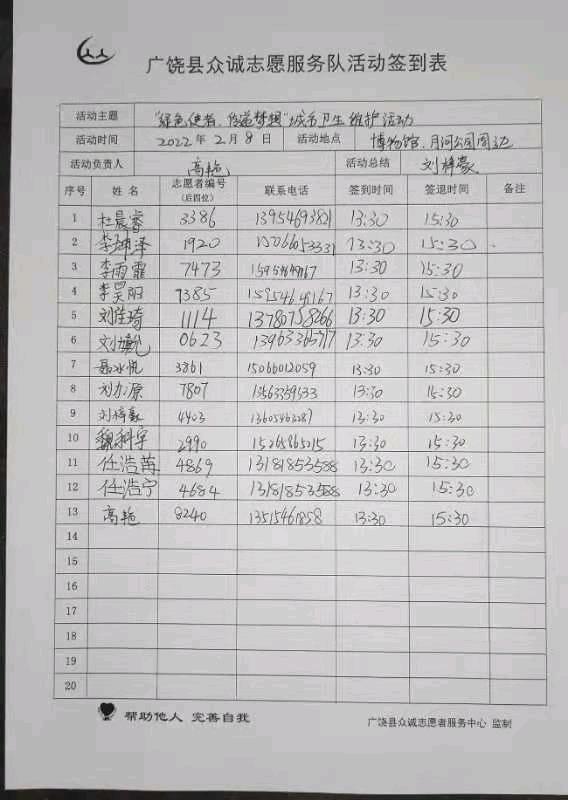 广饶县众诚志愿服务队活动签到表
活动主题 "绿色使者、传递梦想"城市卫生维护活动
活动时间 2022年2月8日 活动地点 博物馆、月河公园周边
活动负责人 高艳 活动总结 刘梓豪
序号 姓名 志愿者编号（后四位） 联系电话 签到时间 签退时间 备注
1 杜晨睿 3386 13954693821 13:30 15:30
2 李坤泽 1920 15066053331 13:30 15:30
3 李雨霏 7473 13:30 15:30
4 李昊阳 7385 13:30 15:30
5 刘佳琦 1114 13780758266 13:30 15:30
6 0623 13963365717 13:30 15:30
7 聂冰悦 3861 15066012059 13:30 15:30
8 刘力源 7807 13563359533 13:30 15:30
9 刘梓豪 4403 13605463287 13:30 15:30
10 魏科宇 2990 15265865215 13:30 15:30
11 任浩苒 4869 13181853588 13:30 15:30
12 任浩宁 4684 13181853588 13:30 15:30
13 高艳 8240 13515461858 13:30 15:30
14
15
16
17
18
19
20
帮助他人 完善自我
广饶县众诚志愿者服务中心 监制